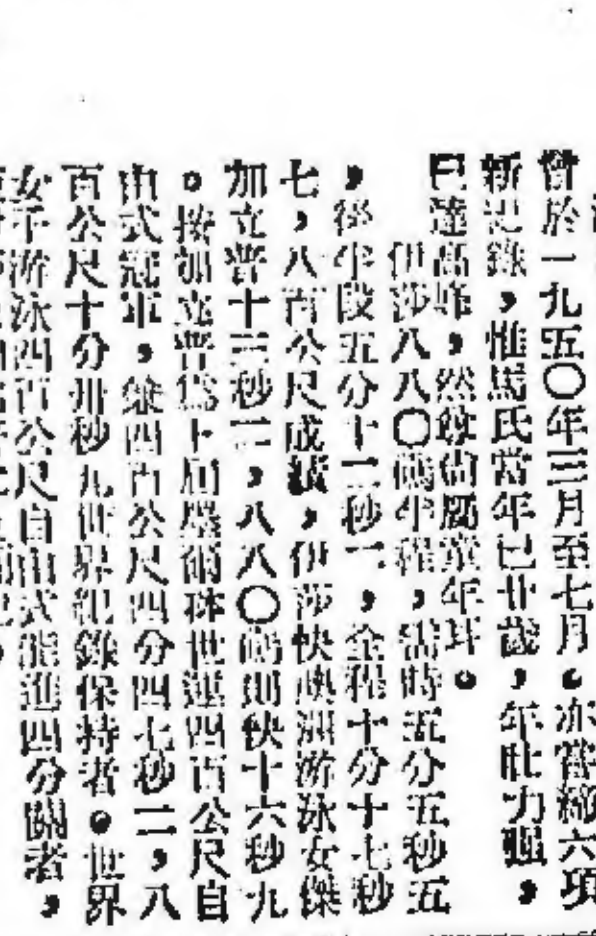 曾於一九五〇年三月至七月。亦嘗締六項
新記錄，惟馬氏當年已廿歲，年壯力強，
已達高峰，然尚屬童年耳。
伊莎八八〇碼半程，需時五分五秒五
，後半段五分十二秒一，全程十分十七秒
七，八百公尺成績，伊莎快澳洲游泳女傑
加立普十三秒二，八八〇碼則快十六秒九
。按加立普為上屆墨爾砵世運四百公尺自
由式冠軍，兼四百公尺四分四七秒二，八
百公尺十分卅秒九世界紀錄保持者。世界
女子游泳四百公尺自由式能進四分關者，